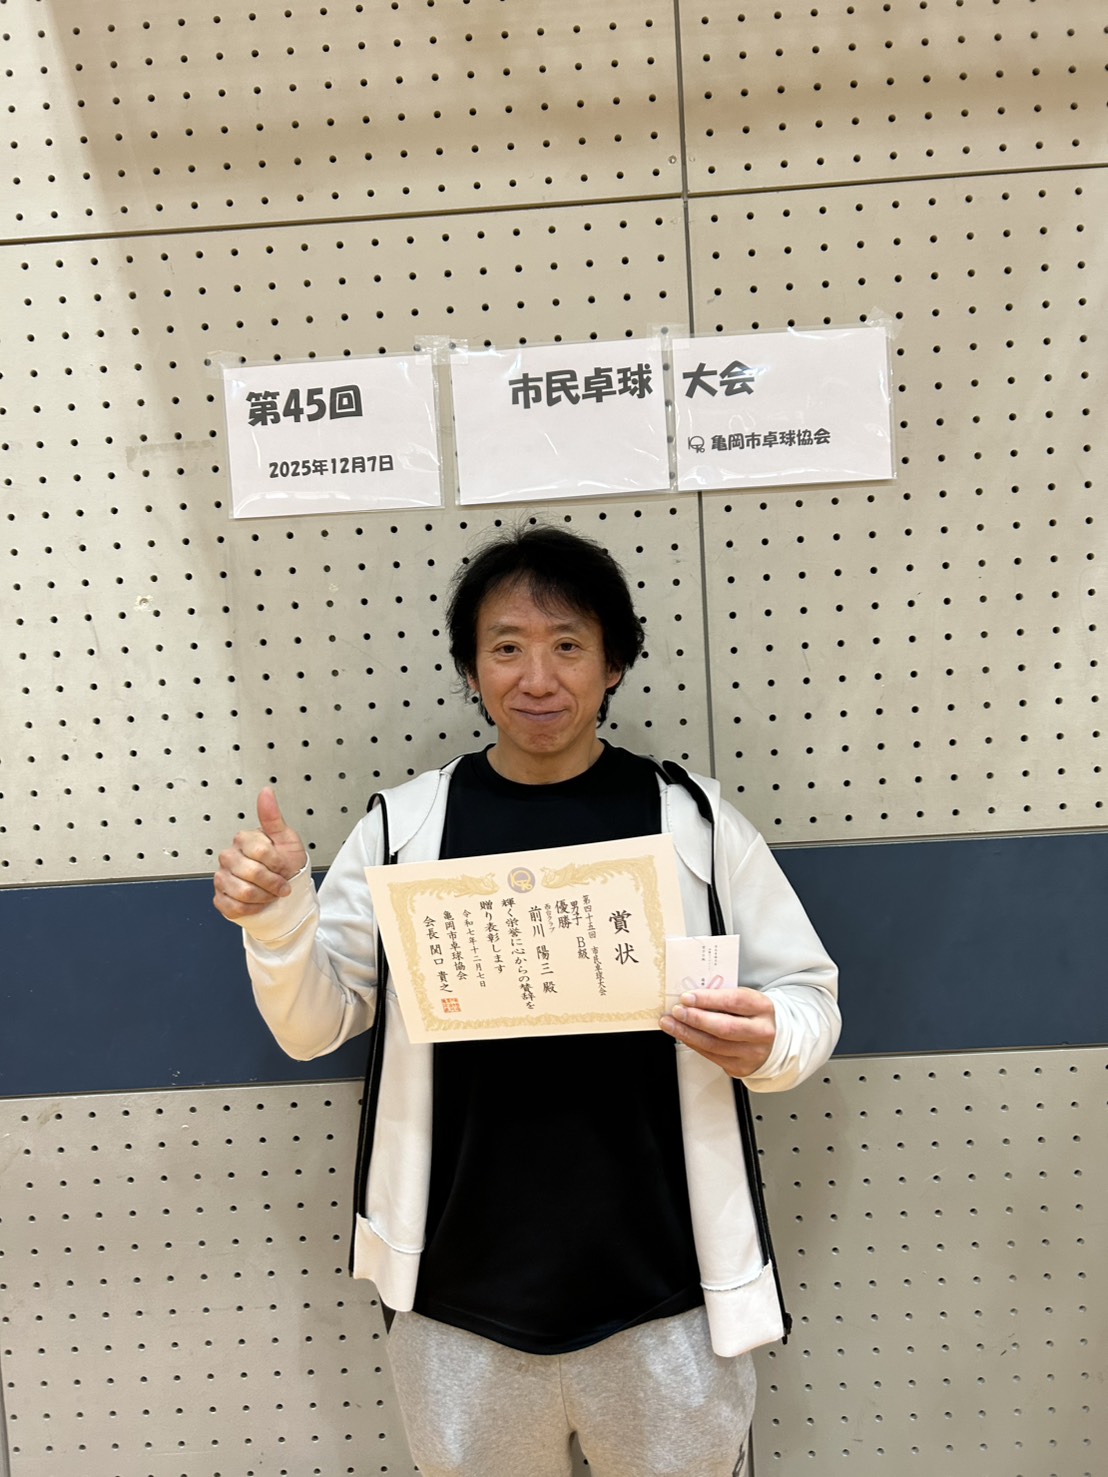 第45回
市民卓球
大会
2025年12月7日
亀岡市卓球協会
賞状
第四十五回 市民卓球大会
男子 B級
優勝
前川 陽三 殿
輝く栄誉に心からの賛辞を
贈り表彰します
令和七年十二月七日
亀岡市卓球協会
会長 関口 貴之